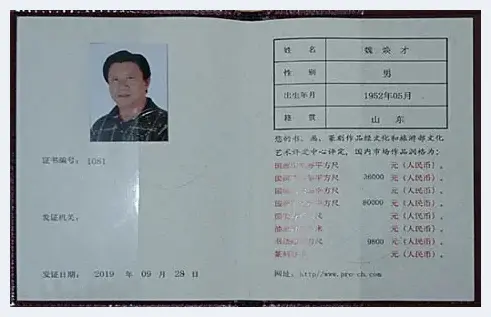 证书编号：1081
发证机关：
发证日期：2019 年 09 月 28 日
姓 名 魏 焕 才
性 别 男
出生年月 1952年05月
籍 贯 山 东
您的书、画、篆刻作品经文化和旅游部文化
艺术评定中心评定，国内市场作品润格为：
平方尺 元（人民币）。
平方尺 36000 元（人民币）。
平方尺 元（人民币）。
平方尺 80000 元（人民币）。
尺 元（人民币）。
米 元（人民币）。
方尺 9800 元（人民币）。
篆刻 元（人民币）。
网址：http//www.pre-ch.com